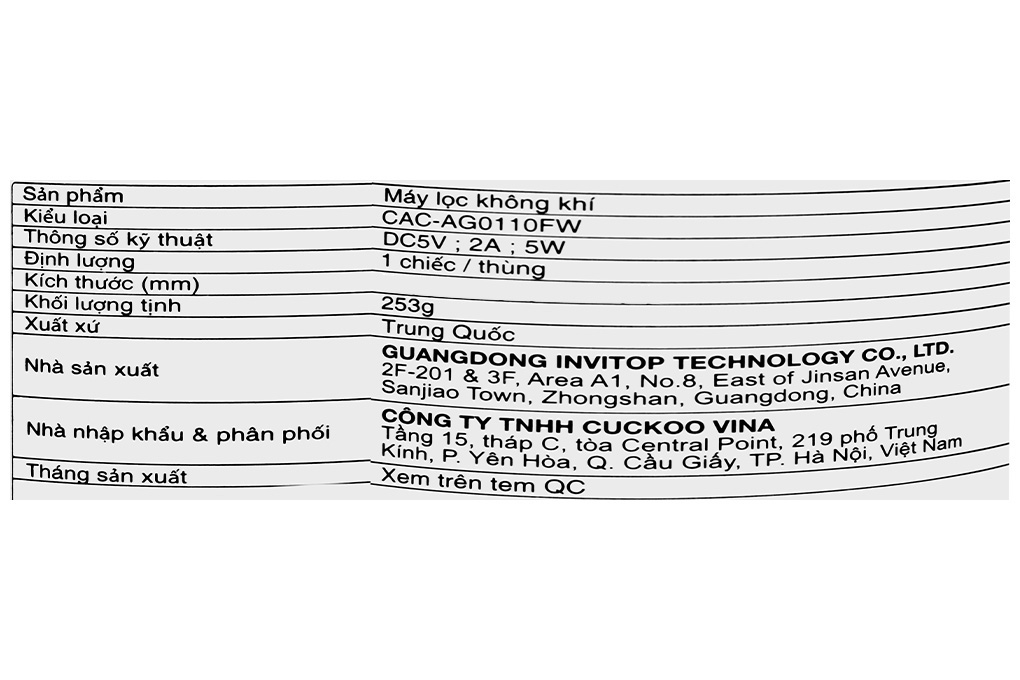 Sản phẩm Máy lọc không khí
Kiểu loại CAC-AG0110FW
Thông số kỹ thuật DC5V ; 2A ; 5W
Định lượng 1 chiếc / thùng
Kích thước (mm)
Khối lượng tịnh 253g
Xuất xứ Trung Quốc
Nhà sản xuất
GUANGDONG INVITOP TECHNOLOGY CO., LTD.
2F-201 & 3F, Area A1, No.8, East of Jinsan Avenue,
Sanjiao Town, Zhongshan, Guangdong, China
Nhà nhập khẩu & phân phối
CÔNG TY TNHH CUCKOO VINA
Tầng 15, tháp C, tòa Central Point, 219 phố Trung
Kính, P. Yên Hòa, Q. Cầu Giấy, TP. Hà Nội, Việt Nam
Tháng sản xuất Xem trên tem QC